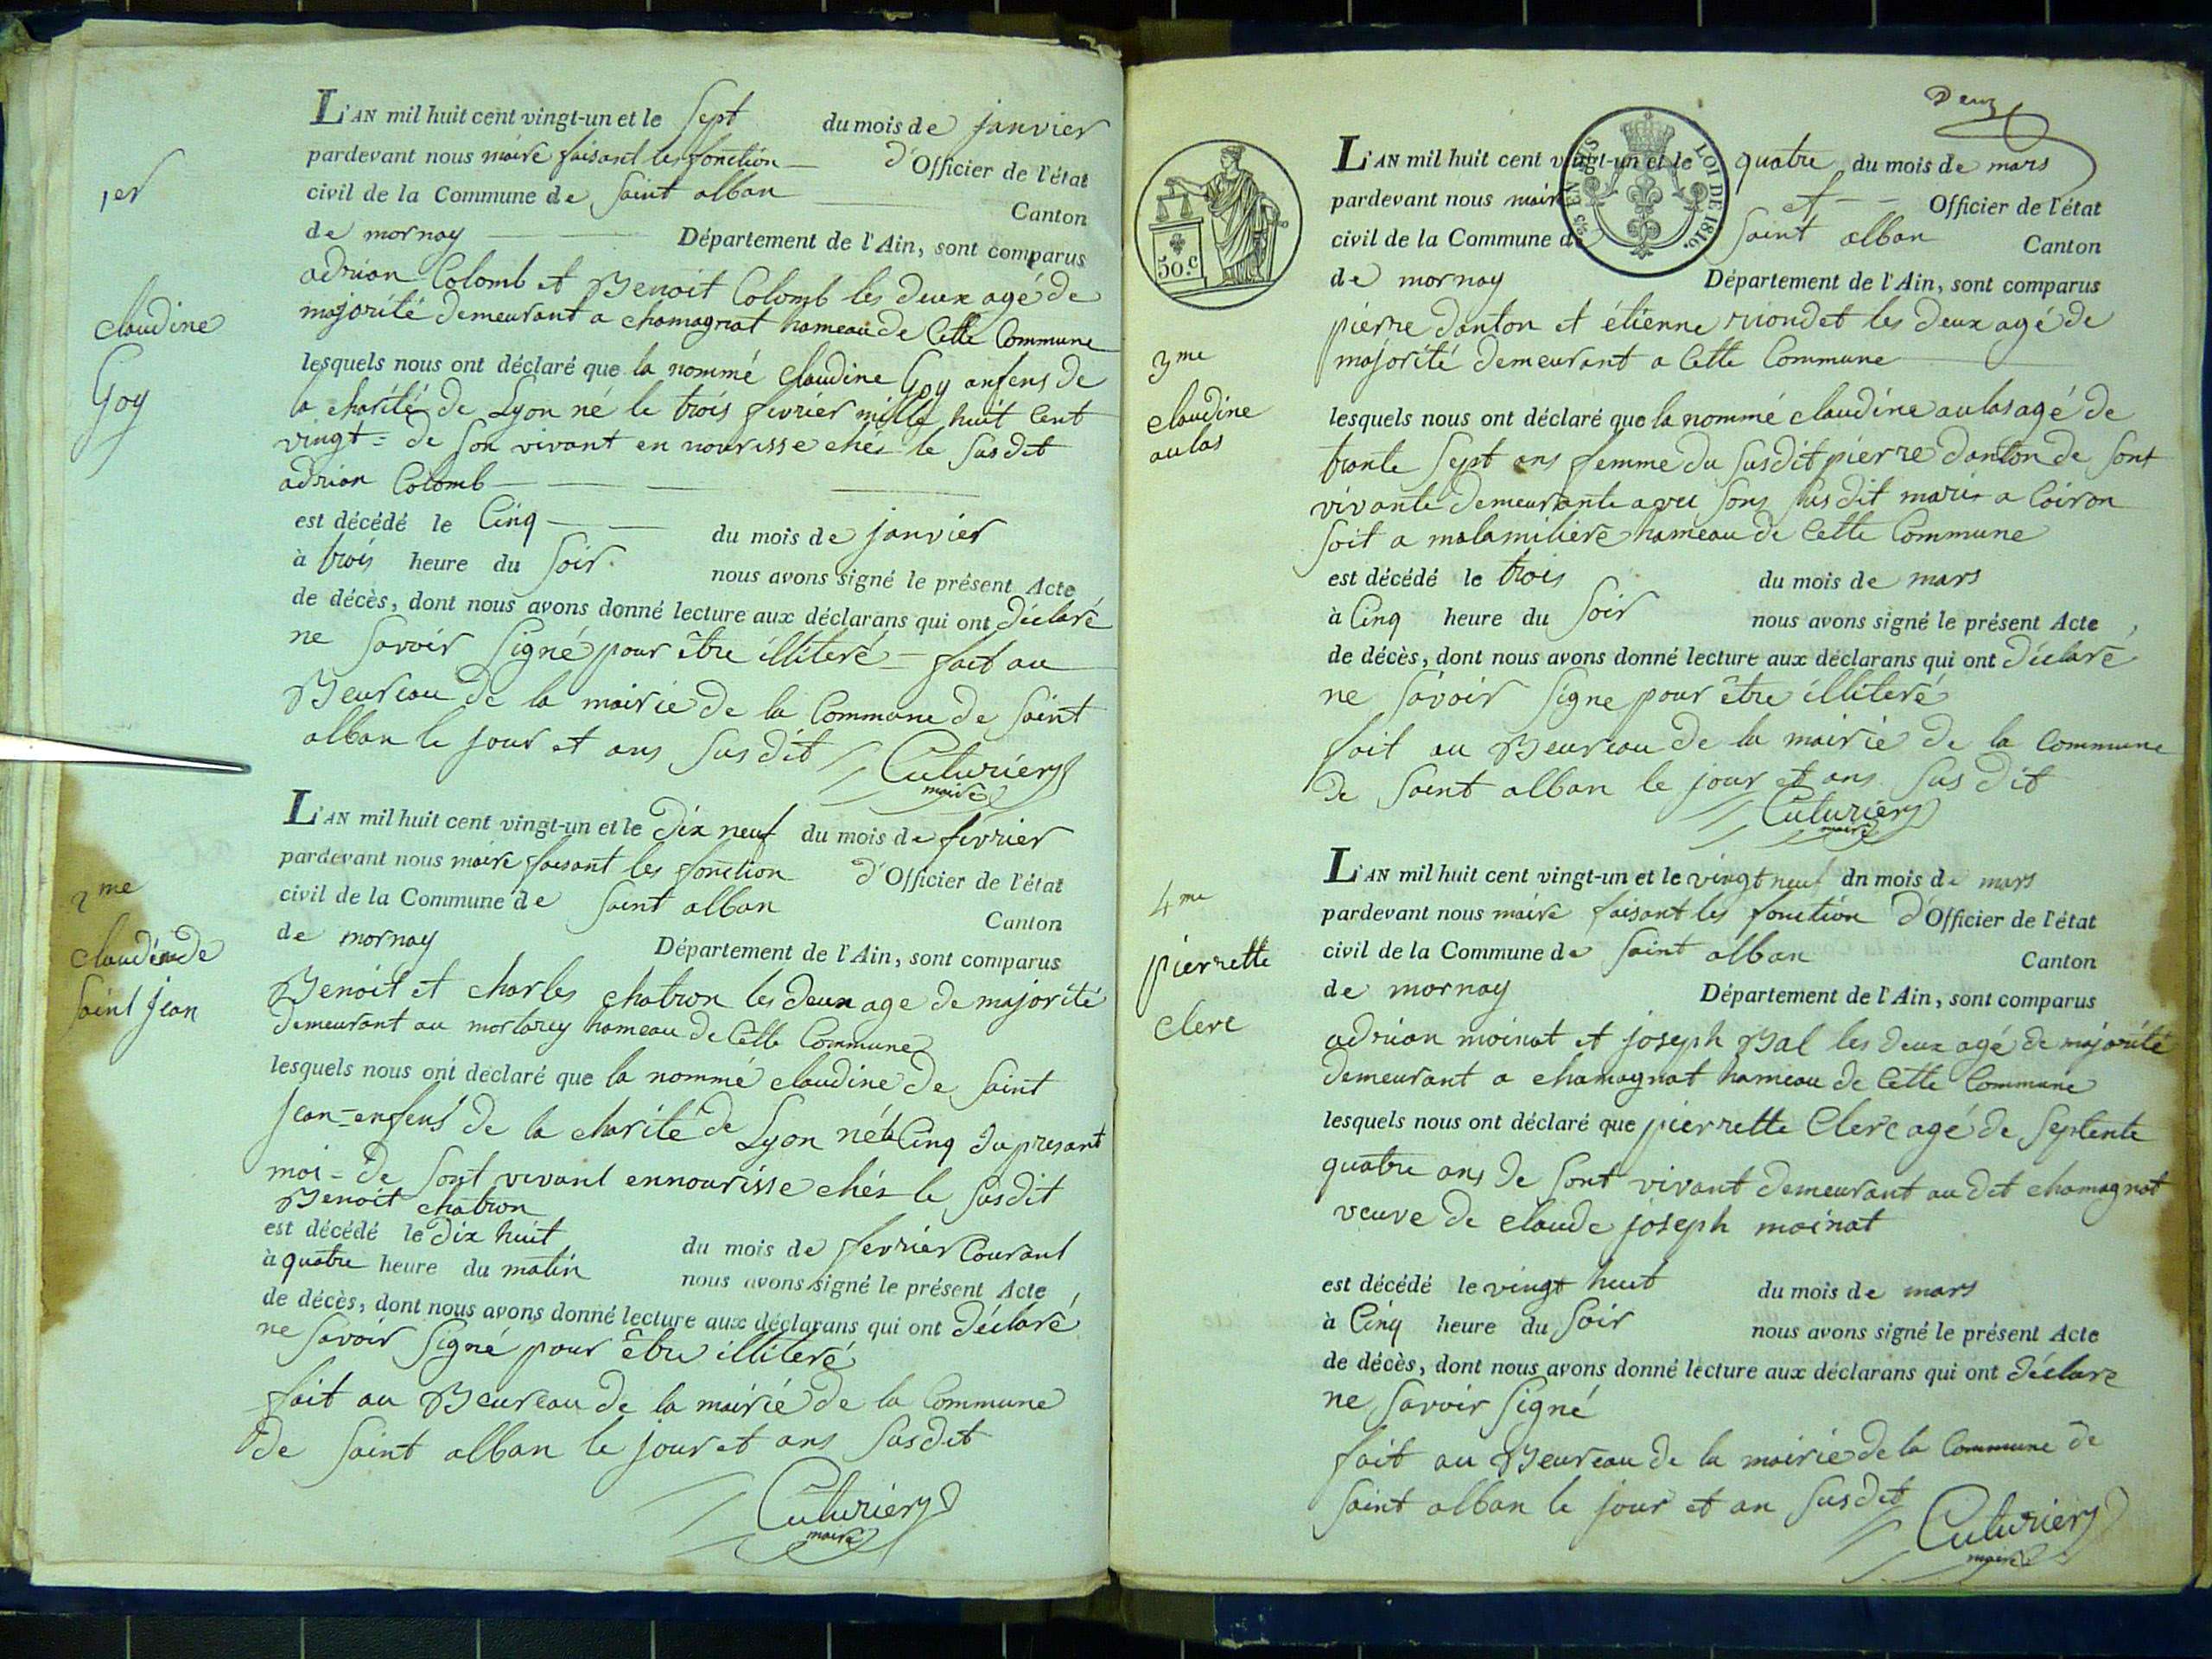 1er
claudine
Goy
L'AN mil huit cent vingt-un et le Sept du mois de janvier
pardevant nous maire faisant les fonction d'Officier de l'état
civil de la Commune de Saint alban Canton
de mornay Département de l'Ain, sont comparus
adrian Colomb et Benoit Colomb les deux agé de
majorité demeurant a chamagnat hameau de Cette Commune
lesquels nous ont déclaré que la nommé claudine Goy enfens de
la charité de Lyon né le trois fevrier mille huit Cent
vingt = de Son vivant en nourisse chés le Susdit
adrian Colomb
est décédé le Cinq du mois de janvier
à trois heure du Soir. nous avons signé le présent Acte
de décès, dont nous avons donné lecture aux déclarans qui ont déclaré
ne Savoir Signé pour être illiteré – fait au
Beureau de la mairie de la Commune de Saint
alban le jour et ans Susdit Cuturier
maire
2me
claudine de
Saint jean
L'AN mil huit cent vingt-un et le dix neuf du mois de fevrier
pardevant nous maire faisant les fonction d'Officier de l'état
civil de la Commune de Saint alban Canton
de mornay Département de l'Ain, sont comparus
Benoit et charles chatron les deux age de majorité
demeurant au mortarey hameau de Cette Commune
lesquels nous ont déclaré que la nommé claudine de Saint
Jean = enfens de la charité de Lyon né le Cinq du presant
moi = de Sont vivant ennourisse chés le Susdit
Benoit chatron
est décédé le dix huit du mois de fevrier Courant
à quatre heure du matin nous avons signé le présent Acte
de décès, dont nous avons donné lecture aux déclarans qui ont déclaré
ne Savoir Signé pour être illiteré
fait au Beureau de la mairie de la Commune
de Saint alban le jour et ans Susdit
Cuturier
maire
Deux
EN SUS
LOI DE 1816.
50.c
3me
claudine
aulas
L'AN mil huit cent vingt-un et le quatre du mois de mars
pardevant nous maire et Officier de l'état
civil de la Commune de Saint alban Canton
de mornay Département de l'Ain, sont comparus
pierre danton et étienne riondet les deux agé de
majorité demeurant a Cette Commune
lesquels nous ont déclaré que la nommé claudine aulas agé de
trante Sept ans femme du Susdit pierre danton de Sont
vivante demeurante avec Sons Susdit maris a Coiron
Soit a malamiliere hameau de Cette Commune
est décédé le trois du mois de mars
à Cinq heure du Soir nous avons signé le présent Acte
de décès, dont nous avons donné lecture aux déclarans qui ont déclaré
ne Savoir Signe pour être illiteré
fait au Beureau de la mairie de la Commune
de Saint alban le jour et ans Susdit
Cuturier
maire
4me
pierrette
clerc
L'AN mil huit cent vingt-un et le vingt neuf du mois de mars
pardevant nous maire faisant les fonction d'Officier de l'état
civil de la Commune de Saint alban Canton
de mornay Département de l'Ain, sont comparus
adrian moinat et joseph Bal les deux agé de majorité
demeurant a chamagnat hameau de Cette Commune
lesquels nous ont déclaré que pierrette Clerc agé de Septente
quatre ans de Sont vivant demeurant au dit chamagnat
veuve de claude joseph moinat
est décédé le vingt huit du mois de mars
à Cinq heure du Soir nous avons signé le présent Acte
de décès, dont nous avons donné lecture aux déclarans qui ont déclare
ne Savoir Signé
fait au Beureau de la mairie de la Commune de
Saint alban le jour et an Susdit
Cuturier
maire